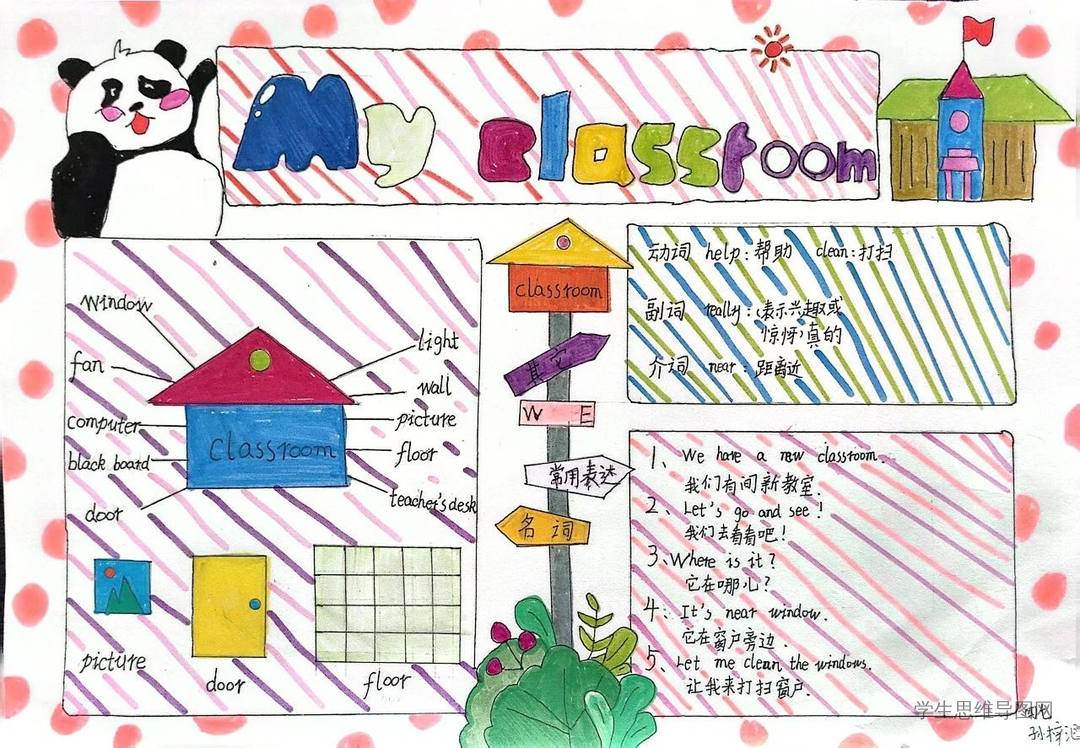 My classroom
window
fan
computer
black board
door
light
wall
picture
floor
teacher's desk
classroom
picture
door
floor
classroom
其它
W E
常用表达
名词
动词 help:帮助 clean:打扫
副词 really:(表示兴趣或
惊讶)真的
介词 near:距离近
1、We have a new classroom.
我们有间新教室.
2、Let's go and see!
我们去看看吧!
3、Where is it?
它在哪儿?
4、It's near window.
它在窗户旁边.
5、Let me clean the windows.
让我来打扫窗户.
学生思维导图网